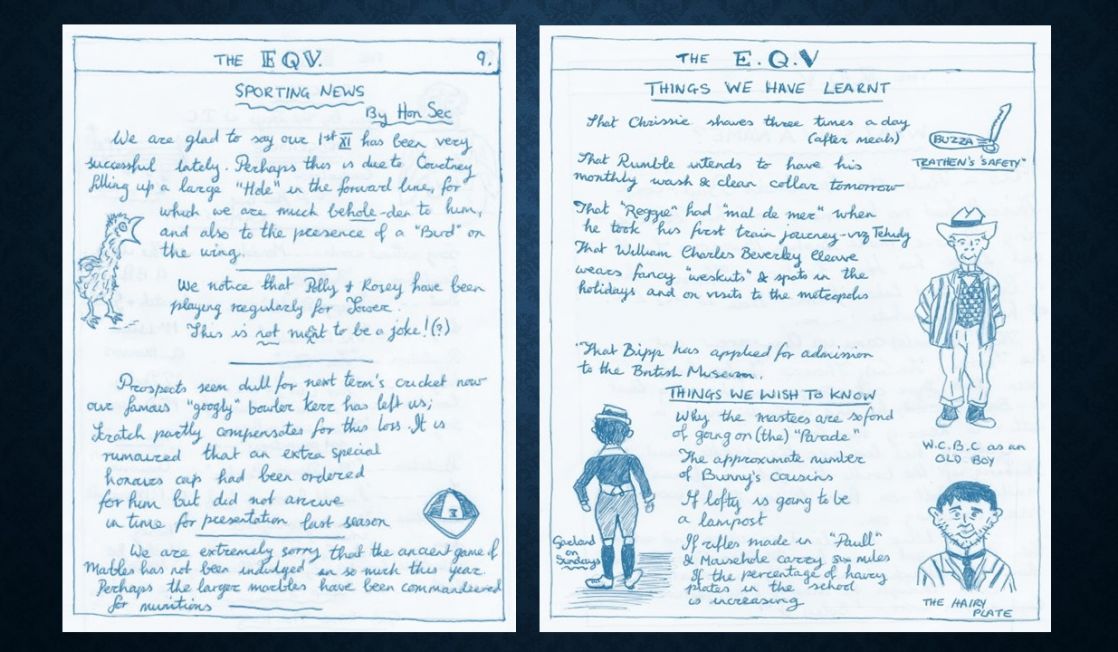 THE EQV. 9.
SPORTING NEWS
By Hon Sec
We are glad to say our 1st XI has been very
successful lately. Perhaps this is due to Courtney
filling up a large "Hole" in the forward line, for
which we are much behole-den to him,
and also to the presence of a "Burd" on
the wing.
We notice that Polly & Rosey have been
playing regularly for Tower.
This is not meant to be a joke! (?)
Prospects seem dull for next term's cricket now
our famous "googly" bowler Kerr has left us;
Scratch partly compensates for this loss. It is
rumoured that an extra special
honours cap had been ordered
for him but did not arrive
in time for presentation last season
We are extremely sorry that the ancient game of
Marbles has not been indulged in so much this year.
Perhaps the larger marbles have been commandeered
for munitions
THE E.Q.V
THINGS WE HAVE LEARNT
That Chrissie shaves three times a day
(after meals)
BUZZA
TRATHEN'S "SAFETY"
That Rumble intends to have his
monthly wash & clean collar tomorrow
That "Reggie" had "mal de mer" when
he took his first train journey - viz Tehidy
That William Charles Beverley Cleave
wears fancy "weskuts" & spats in the
holidays and on visits to the metropolis
"That Bipp has applied for admission
to the British Museum.
W.C.B.C as an
OLD BOY
THINGS WE WISH TO KNOW
Why the masters are so fond
of going on (the) "Parade"
The approximate number
of Bunny's cousins
If lofty is going to be
a lampost
If rifles made in "Paull"
& Mousehole carry miles
If the percentage of hairy
plates in the school
is increasing
on
Sundays
THE HAIRY
PLATE